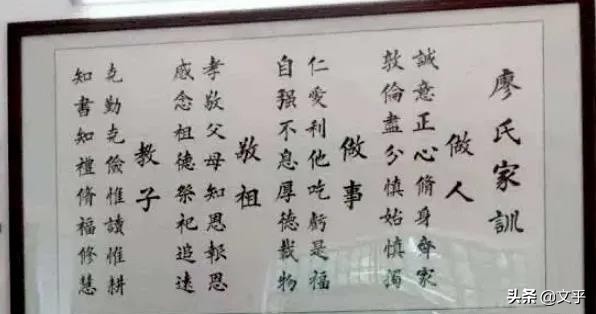 廖氏家訓
做人
誠意正心脩身齊家
敦倫盡分慎始慎獨
做事
仁愛利他吃虧是福
自强不息厚德載物
敬祖
孝敬父母知恩報恩
感念祖德祭祀追遠
教子
克勤克儉惟讀惟耕
知書知禮脩福修慧
头条@文乎